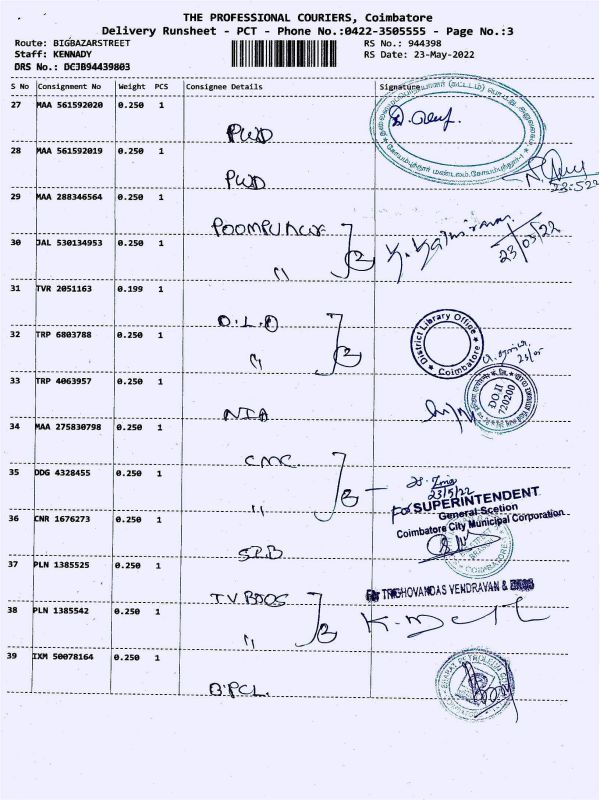 THE PROFESSIONAL COURIERS, Coimbatore
Delivery Runsheet - PCT - Phone No.:0422-3505555 - Page No.:3
Route: BIGBAZARSTREET
RS No.: 944398
Staff: KENNADY
RS Date: 23-May-2022
DRS No.: DCJB94439803
S No Consignment No Weight PCS Consignee Details Signature
27 MAA 561592020 0.250 1
PWD
28 MAA 561592019 0.250 1
PWD
23-5-22
29 MAA 288346564 0.250 1
POOMPUHAR
30 JAL 530134953 0.250 1
" 2
23/05/22
31 TVR 2051163 0.199 1
D.L.O
District Library Office
Coimbatore
32 TRP 6803788 0.250 1
" 2
33 TRP 4063957 0.250 1
NIA
DO.II
720200
34 MAA 275830798 0.250 1
CMC
35 DDG 4328455 0.250 1
" 2
23/5/22
For SUPERINTENDENT
General Scetion
Coimbatore City Municipal Corporation.
36 CNR 1676273 0.250 1
COIMBATORE
37 PLN 1385525 0.250 1
For TRIBHOVANDAS VENDRAVAN &
T.V. BROS
38 PLN 1385542 0.250 1
" 2
39 IXM 50078164 0.250 1
BPCL